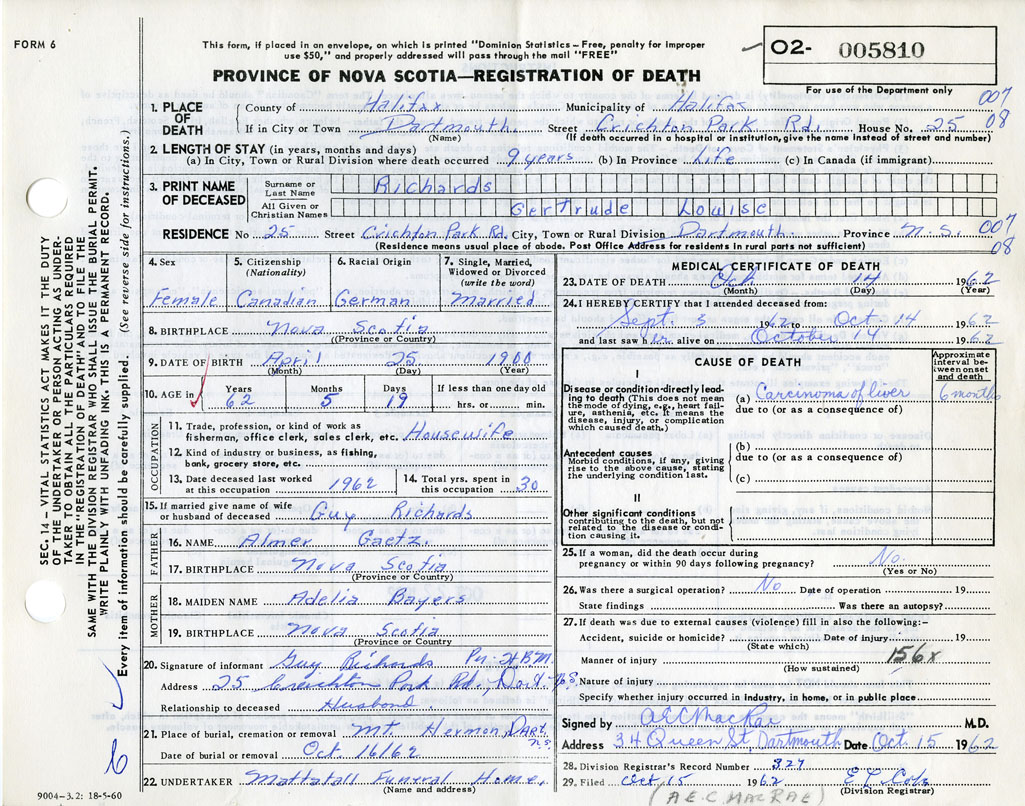 FORM 6
This form, if placed in an envelope, on which is printed "Dominion Statistics – Free, penalty for improper
use $50," and properly addressed will pass through the mail "FREE"
PROVINCE OF NOVA SCOTIA—REGISTRATION OF DEATH
02- 005810
For use of the Department only
007
08
1. PLACE OF DEATH
County of Halifax Municipality of Halifax
If in City or Town Dartmouth Street Crichton Park Rd. House No. 25
(If death occurred in a hospital or institution, give the name instead of street and number)
2. LENGTH OF STAY (in years, months and days)
(a) In City, Town or Rural Division where death occurred 9 years (b) In Province Life (c) In Canada (if immigrant)
3. PRINT NAME OF DECEASED
Surname or Last Name Richards
All Given or Christian Names Gertrude Louise
RESIDENCE No 25 Street Crichton Park Rd. City, Town or Rural Division Dartmouth Province N.S.
(Residence means usual place of abode. Post Office Address for residents in rural parts not sufficient)
007
08
4. Sex Female
5. Citizenship (Nationality) Canadian
6. Racial Origin German
7. Single, Married, Widowed or Divorced (write the word) Married
8. BIRTHPLACE Nova Scotia
(Province or Country)
9. DATE OF BIRTH April 25 1900
(Month) (Day) (Year)
10. AGE in Years 62 Months 5 Days 19 If less than one day old hrs. or min.
OCCUPATION
11. Trade, profession, or kind of work as
fisherman, office clerk, sales clerk, etc. Housewife
12. Kind of industry or business, as fishing,
bank, grocery store, etc.
13. Date deceased last worked at this occupation 1962
14. Total yrs. spent in this occupation 30
15. If married give name of wife
or husband of deceased Guy Richards
FATHER
16. NAME Almer Gaetz.
17. BIRTHPLACE Nova Scotia
(Province or Country)
MOTHER
18. MAIDEN NAME Adelia Bayers
19. BIRTHPLACE Nova Scotia
(Province or Country)
20. Signature of informant Guy Richards Per H.B.M.
Address 25 Creichton Park Rd., Dart. N.S.
Relationship to deceased Husband
21. Place of burial, cremation or removal Mt. Hermon, DART. N.S.
Date of burial or removal Oct 16/62
22. UNDERTAKER Mattatall Funeral Home,
(Name and address)
9004–3.2: 18-5-60
MEDICAL CERTIFICATE OF DEATH
23. DATE OF DEATH Oct. 14 1962
(Month) (Day) (Year)
24. I HEREBY CERTIFY that I attended deceased from:
Sept. 3 1962 to Oct 14 1962
and last saw her alive on October 14 1962
CAUSE OF DEATH
Approximate interval between onset and death
I
Disease or condition directly leading to death (This does not mean the mode of dying, e.g., heart failure, asthenia, etc. It means the disease, injury, or complication which caused death.)
(a) Carcinoma of liver 6 months
due to (or as a consequence of)
Antecedent causes
Morbid conditions, if any, giving rise to the above cause, stating the underlying condition last.
(b)
due to (or as a consequence of)
(c)
II
Other significant conditions
contributing to the death, but not related to the disease or condition causing it.
25. If a woman, did the death occur during
pregnancy or within 90 days following pregnancy? No
(Yes or No)
26. Was there a surgical operation? No Date of operation 19
State findings Was there an autopsy?
27. If death was due to external causes (violence) fill in also the following:–
Accident, suicide or homicide? Date of injury 19
(State which)
Manner of injury 156x
(How sustained)
Nature of injury
Specify whether injury occurred in industry, in home, or in public place
Signed by A E C MacRae M.D.
Address 34 Queen St, Dartmouth Date Oct. 15 1962
28. Division Registrar's Record Number 327
29. Filed Oct. 15 1962
(Division Registrar)
(A.E.C. MACRAE)
SEC. 14 – VITAL STATISTICS ACT MAKES IT THE DUTY
OF THE UNDERTAKER OR PERSON ACTING AS UNDERTAKER TO OBTAIN ALL THE PARTICULARS REQUIRED
IN THE "REGISTRATION OF DEATH" AND TO FILE THE
SAME WITH THE DIVISION REGISTRAR WHO SHALL ISSUE THE BURIAL PERMIT.
WRITE PLAINLY WITH UNFADING INK. THIS IS A PERMANENT RECORD.
Every item of information should be carefully supplied. (See reverse side for instructions.)